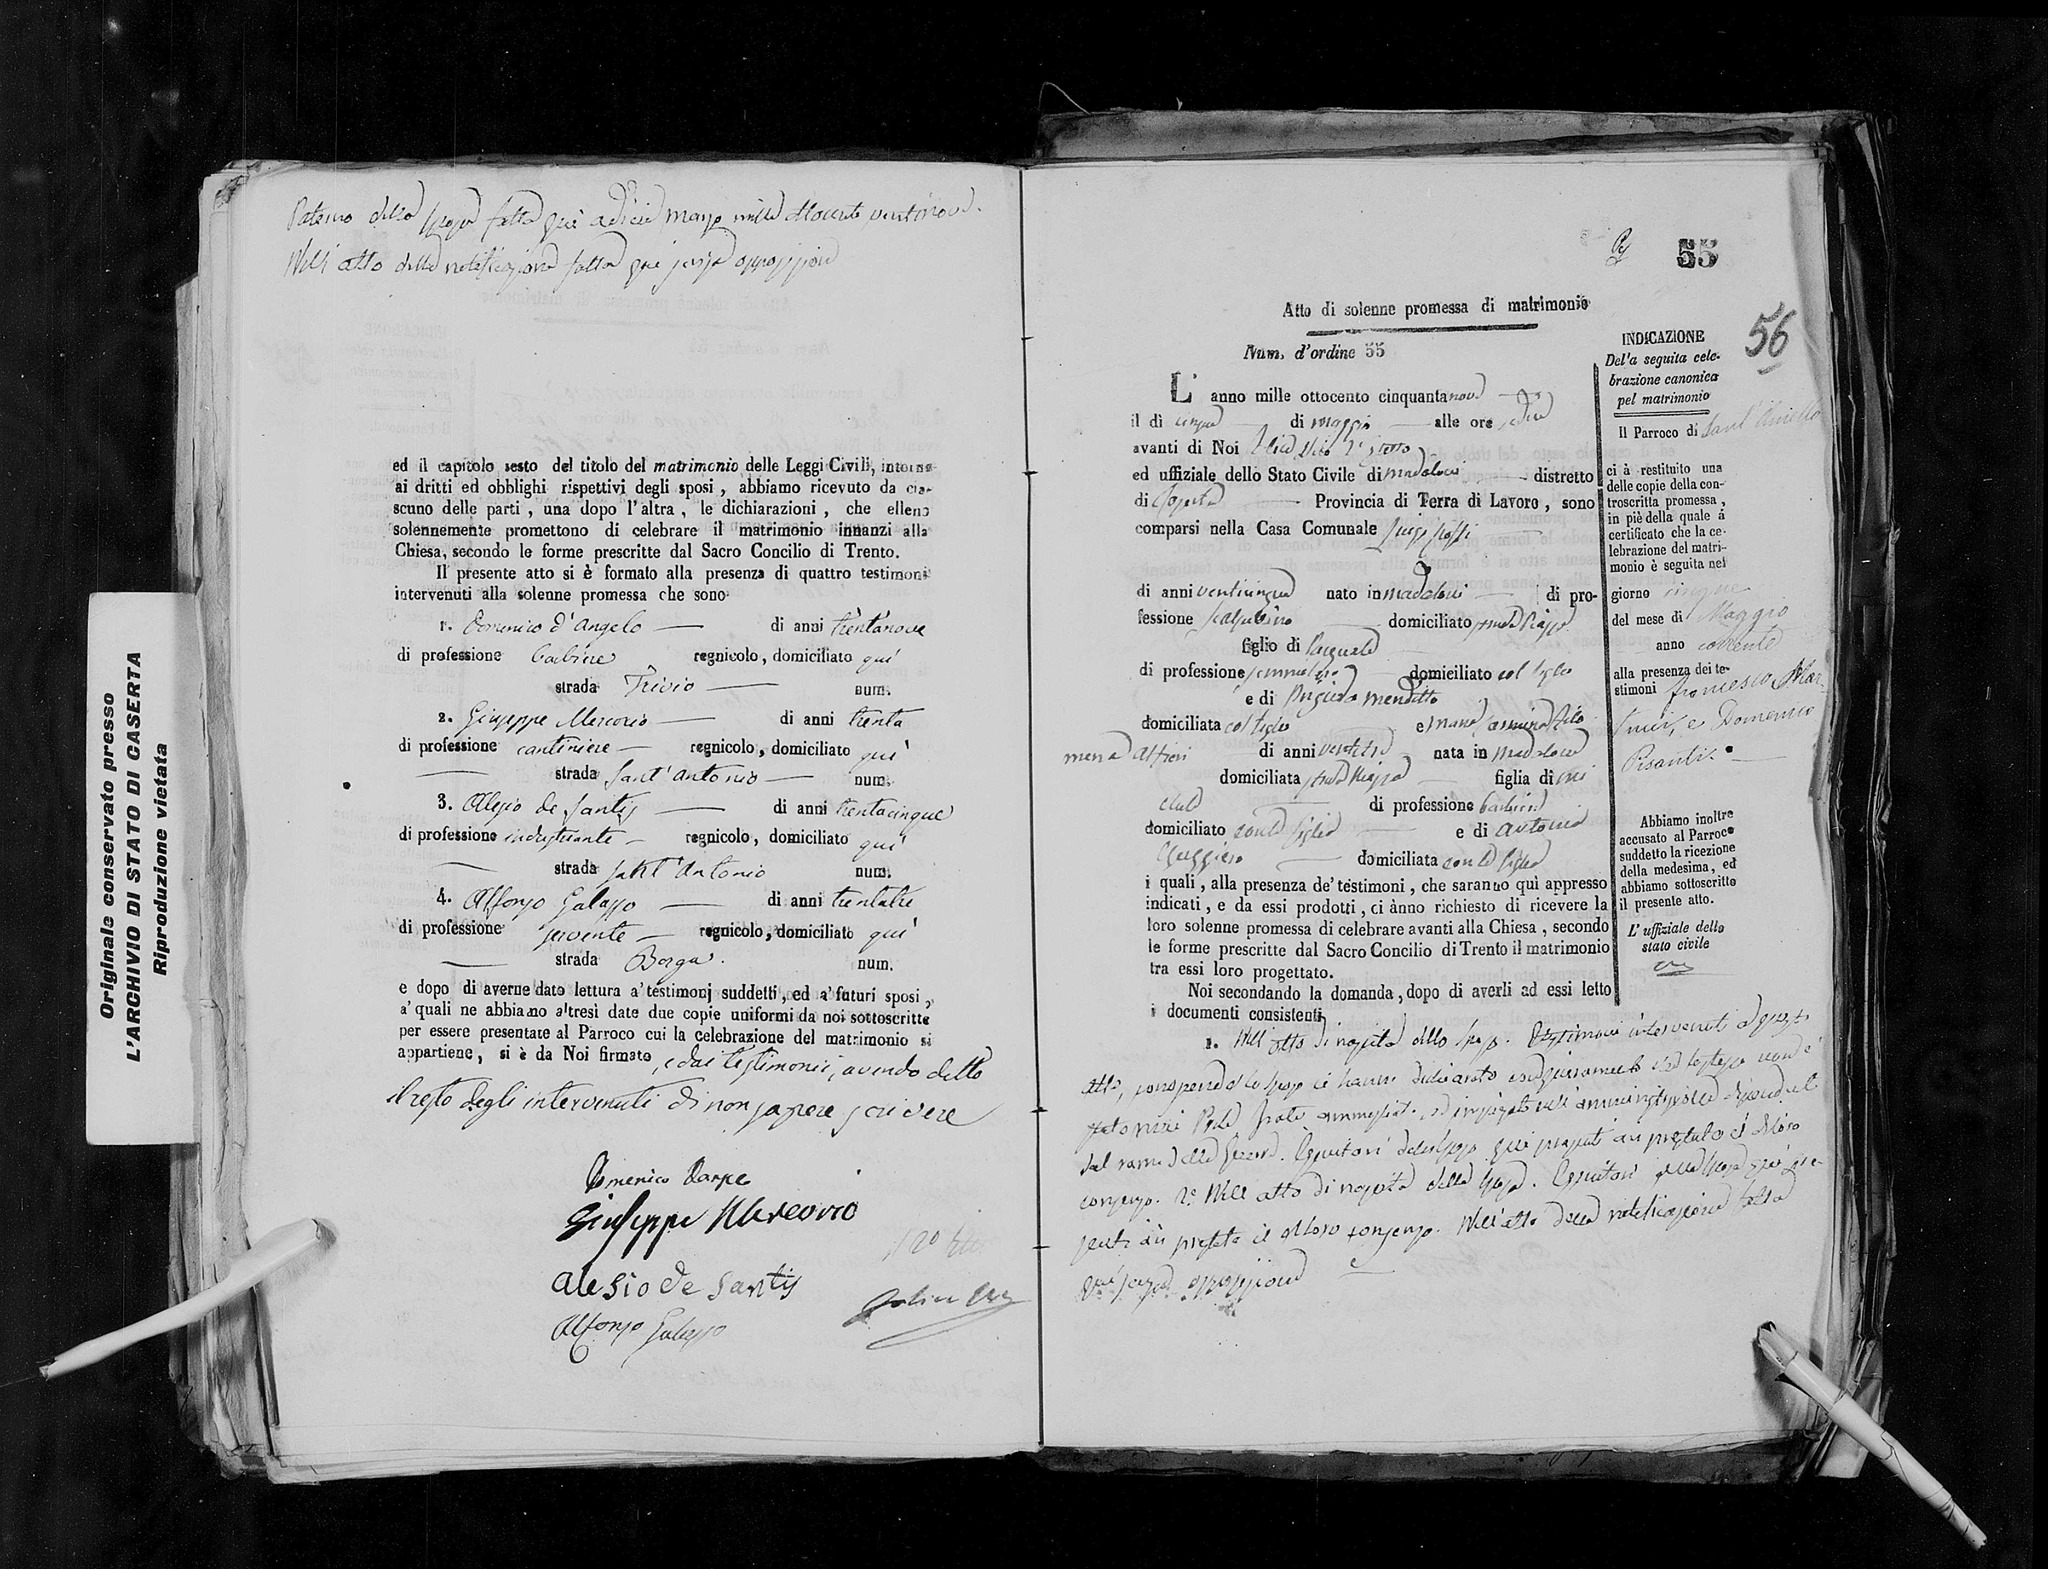 Originale conservato presso
L'ARCHIVIO DI STATO DI CASERTA
Riproduzione vietata
Paterno della sposa fatta qui a marzo mille ottocento ventinove.
Nell'atto della notificazione fatta qui senza opposizione
ed il capitolo sesto del titolo del matrimonio delle Leggi Civili, intorno
ai dritti ed obblighi rispettivi degli sposi, abbiamo ricevuto da cia-
scuno delle parti, una dopo l'altra, le dichiarazioni, che elleno
solennemente promettono di celebrare il matrimonio innanzi alla
Chiesa, secondo le forme prescritte dal Sacro Concilio di Trento.
Il presente atto si è formato alla presenza di quattro testimoni
intervenuti alla solenne promessa che sono
1. Domenico d'Angelo — di anni trentanove
di professione barbiere regnicolo, domiciliato qui
strada Trivio — num.
2. Giuseppe Mercorio — di anni trenta
di professione cantiniere — regnicolo, domiciliato qui
— strada Sant'Antonio — num.
3. Alesio de Santis — di anni trentacinque
di professione industriante — regnicolo, domiciliato qui
— strada Sant'Antonio num.
4. Alfonso Galasso — di anni trentatre
di professione servente — regnicolo, domiciliato qui
— strada Borga num.
e dopo di averne dato lettura a' testimonj suddetti, ed a' futuri sposi,
a' quali ne abbiamo altresì date due copie uniformi da noi sottoscritte
per essere presentate al Parroco cui la celebrazione del matrimonio si
appartiene, si è da Noi firmato, e dai testimonii, avendo detto
il resto degli intervenuti di non sapere scrivere
Domenico
Giuseppe Mercorio
Alesio de Santis
Alfonso Galasso
55
56
Atto di solenne promessa di matrimonio
Num. d'ordine 55
L'anno mille ottocento cinquantanove
il di cinque di maggio — alle ore sedici
avanti di Noi
ed uffiziale dello Stato Civile di Maddaloni — distretto
di Caserta — Provincia di Terra di Lavoro, sono
comparsi nella Casa Comunale Luigi
di anni venticinque nato in Maddaloni — di pro-
fessione scalpellino domiciliato strada Piazza
figlio di Pasquale —
di professione domiciliato col figlio
e di Brigida Menditto
domiciliata col figlio e Maria Carmina Filo
mena Alfieri di anni ventitre nata in Maddaloni
domiciliata strada Piazza — figlia di Mi
chele — di professione barbiere
domiciliato colla figlia — e di Antonia
Ruggiero — domiciliata colla figlia
i quali, alla presenza de' testimoni, che saranno qui appresso
indicati, e da essi prodotti, ci ànno richiesto di ricevere la
loro solenne promessa di celebrare avanti alla Chiesa, secondo
le forme prescritte dal Sacro Concilio di Trento il matrimonio
tra essi loro progettato.
Noi secondando la domanda, dopo di averli ad essi letto
i documenti consistenti
1. Nell'atto di nascita dello sposo. I testimoni intervenuti al presente
atto, lo sposo ci hanno dichiarato con giuramento che lo stesso non è
stato mai nell'amministrazione dipendente
dal ramo della Guerra. I genitori dello sposo qui presenti àn prestato il di loro
consenso. 2° Nell'atto di nascita della sposa. I genitori della sposa qui pre
senti àn prestato il di loro consenso. Nell'atto della notificazione fatta
qui senza opposizione —
INDICAZIONE
Del'a seguita cele-
brazione canonica
pel matrimonio
Il Parroco di Sant'Aniello
ci à restituito una
delle copie della con-
troscritta promessa,
in piè della quale á
certificato che la ce-
lebrazione del matri-
monio è seguita nel
giorno cinque
del mese di Maggio
anno corrente
alla presenza dei te-
stimoni Francesco Mar-
e Domenico
Pisanti. —
Abbiamo inoltre
accusato al Parroco
suddetto la ricezione
della medesima, ed
abbiamo sottoscritto
il presente atto.
L' uffiziale dello
stato civile